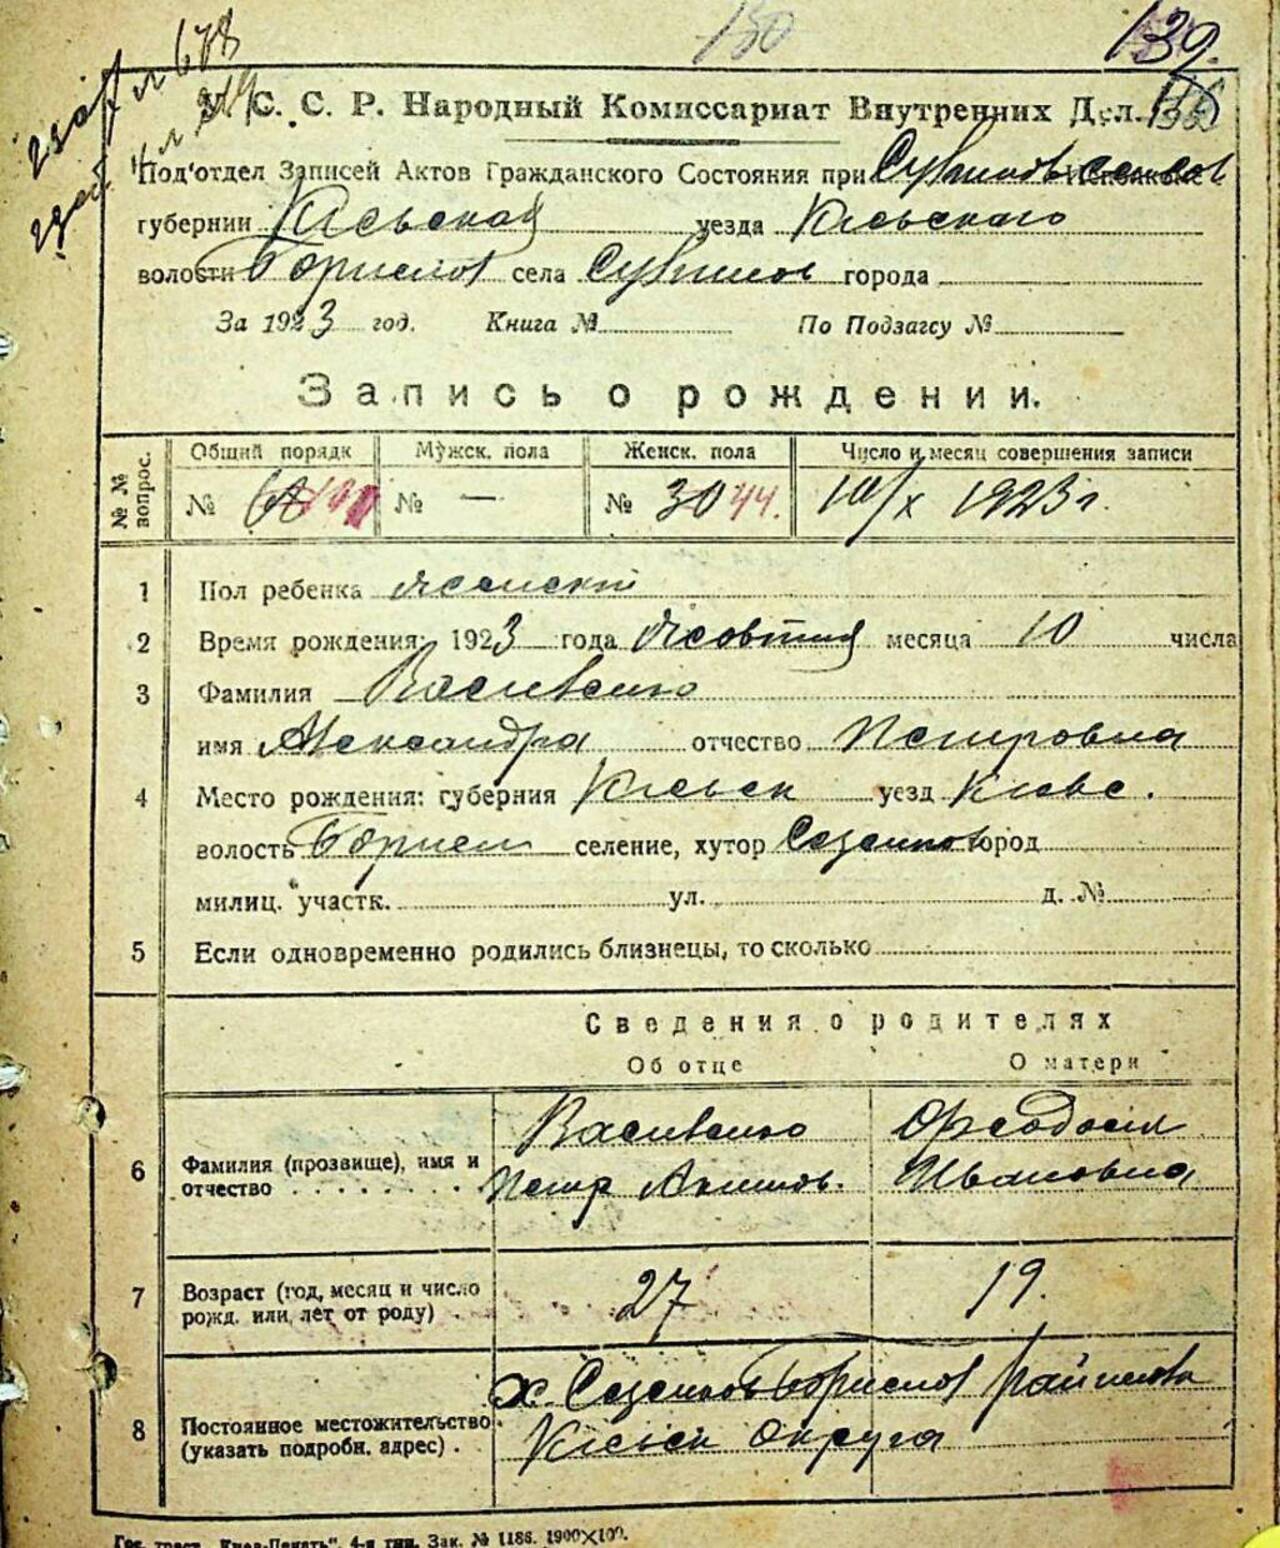 130
139.
У. С. С. Р. Народный Комиссариат Внутренних Дел.
Под'отдел Записей Актов Гражданского Состояния при
губернии Кіевская уезда Кіевскаго
волости Бориспол села города
За 1923 год. Книга № По Подзагсу №
Запись о рождении.
№ № вопрос. Общий порядк Мужск. пола Женск. пола Число и месяц совершения записи
№ № — № 30 44. 10/X 1923 г.
1 Пол ребенка женский
2 Время рождения: 1923 года Жовтня месяца 10 числа
3 Фамилия Василенко
имя Александра отчество Петровна
4 Место рождения: губерния Кіевск уезд Киевс.
волость Борисп селение, хутор Сезенков город
милиц. участк. ул. д. №
5 Если одновременно родились близнецы, то сколько
Сведения о родителях
Об отце О матери
6 Фамилия (прозвище), имя и отчество
Василенко Феодосия
Петр Акимов. Ивановна
7 Возраст (год, месяц и число рожд. или лет от роду) 27 19.
8 Постоянное местожительство (указать подробн. адрес)
х. Сезенков Бориспол района
Кіевск Округа
Гос. трест „Киев-Печать“, 4-я тип. Зак. № 1186. 1900×100.